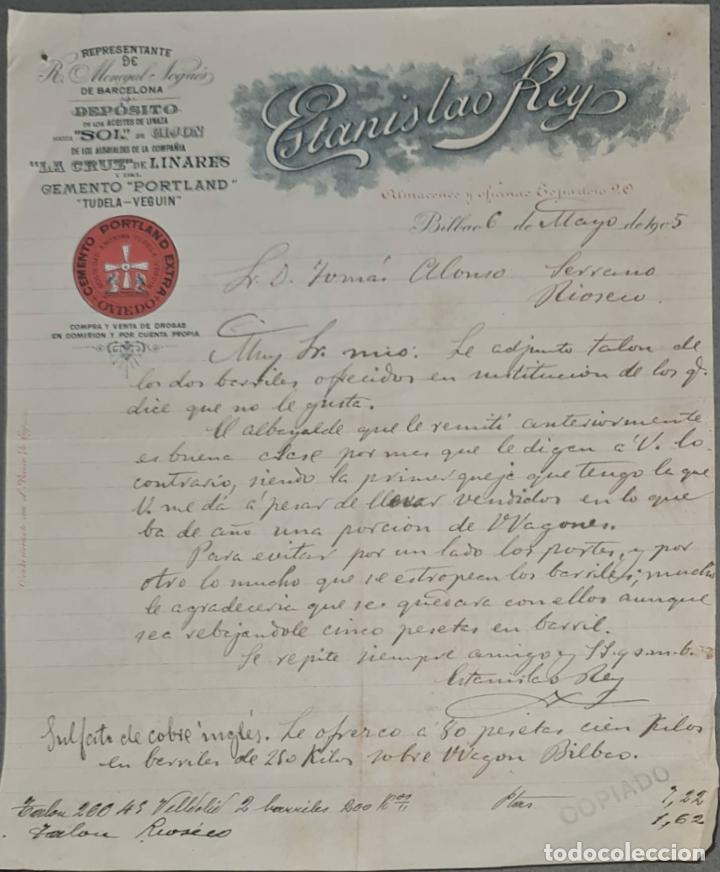 REPRESENTANTE
DE
R. Monegal Nogués
DE BARCELONA
DEPÓSITO
DE LOS ACEITES DE LINAZA
MARCA "SOL" DE GIJON
DE LOS ALBAYALDES DE LA COMPAÑIA
"LA CRUZ" DE LINARES
Y DEL
CEMENTO "PORTLAND"
"TUDELA-VEGUIN"
CEMENTO PORTLAND EXTRA
OVIEDO
COMPRA Y VENTA DE DROGAS
EN COMISION Y POR CUENTA PROPIA
Estanislao Rey
Almacenes y oficinas Espartero 20
Bilbao 6 de Mayo de 1905
Sr. D. Tomás Alonso Serrano
Rioseco.
Muy Sr. mio: Le adjunto talon de
los dos barriles ofrecidos en sustitución de los q.
dice que no le gusta.
El albayalde que le remiti anteriormente
es buena clase por mas que le digen á V. lo
contrario, siendo la primer queja que tengo la que
V. me dá á pesar de llevar vendidos en lo que
ba de año una porción de Wagones.
Para evitar por un lado los portes, y por
otro lo mucho que se estropean los barriles; mucho
le agradeceria que se quedara con ellos aunque
sea rebajandole cinco pesetas en barril.
Se repite siempre amigo y SS. q. s. m. b.
Estanislao Rey
Sulfato de cobre inglés. Le ofrezco á 80 pesetas cien Kilos
en barriles de 250 Kilos sobre Wagon Bilbao.
COPIADO
Talon 200 45 Vallâdolid 2 barriles 200 Kos Ptas 7,22
Talon Rioseco 1,62
todocoleccion.net